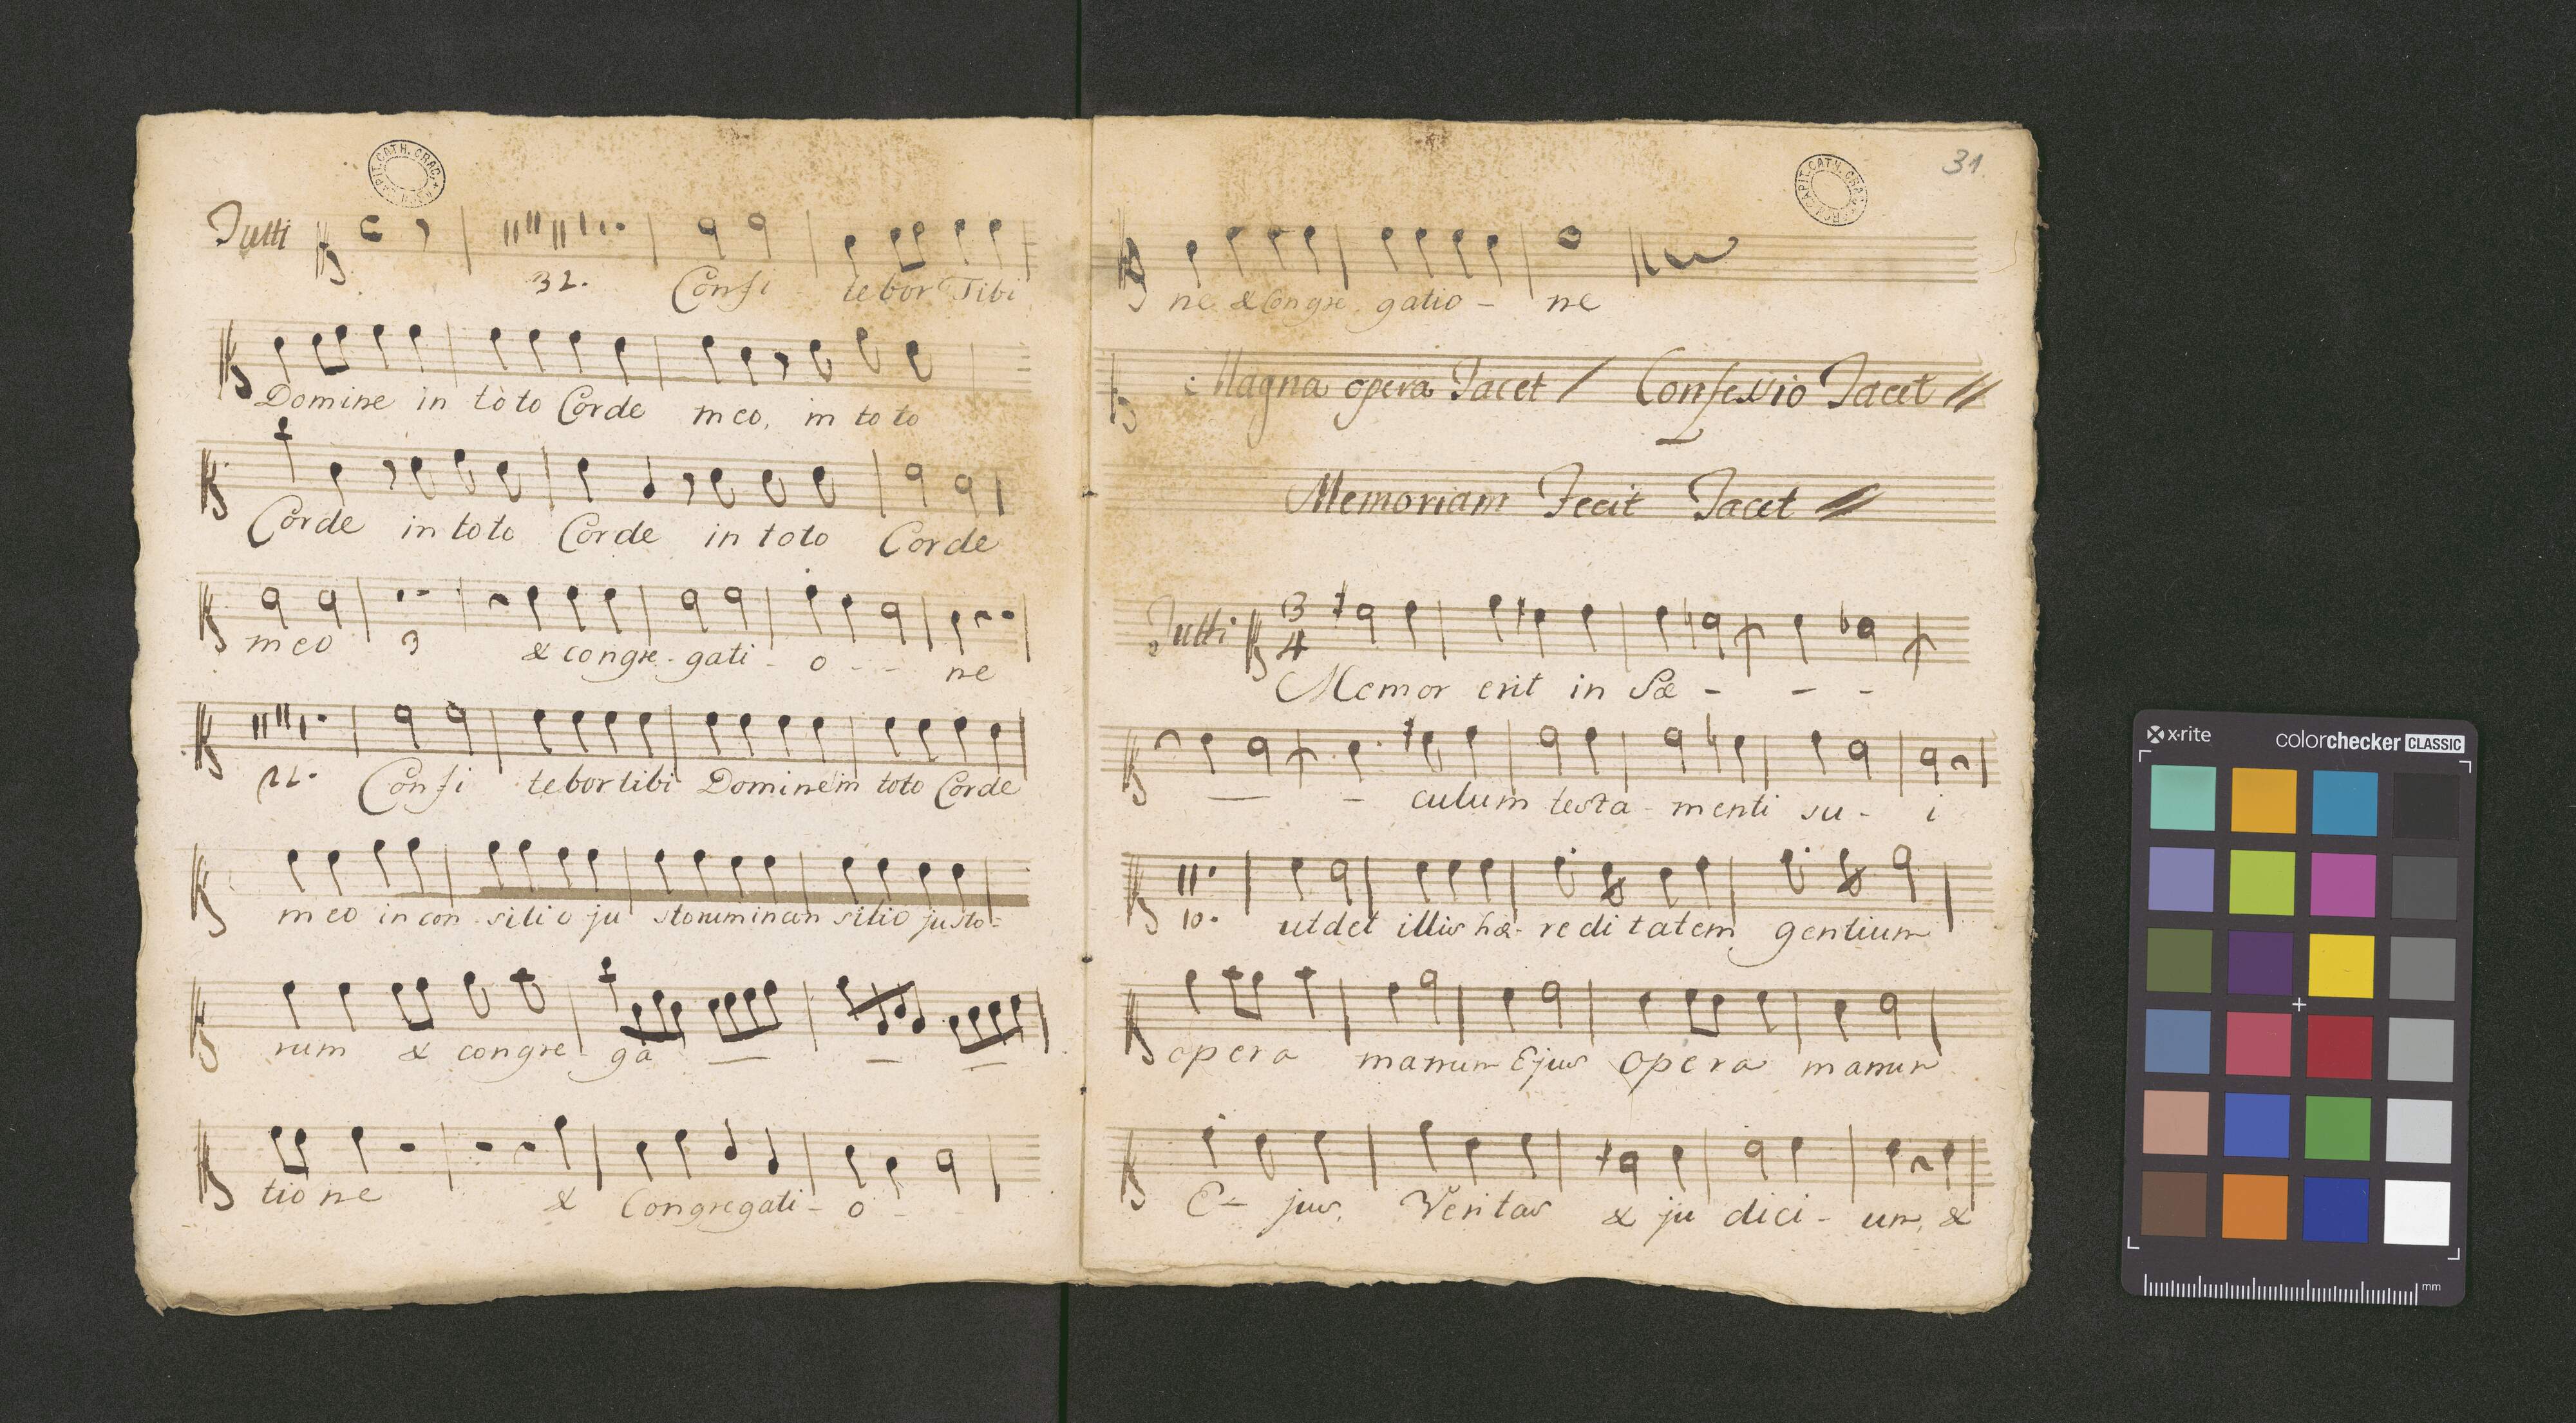 Tutti
32.
Confi - tebor Tibi
Domine in toto Corde meo, in toto
Corde in toto Corde in toto Corde
meo 3 & congre - gati - o - - ne
Confi tebor tibi Domine in toto Corde
meo in con - silio ju storum in con silio justo -
rum & congre - ga - - - -
tio ne & Congregati - o -
31
ne & Congre gatio - ne
Magna opera Tacet / Confessio Tacet //
Memoriam Fecit Tacet //
Tutti 3
4
Memor erit in Sæ - - -
- - culum testa - menti su - i
10. ut det illis hæ - redi tatem gentium
opera manum Ejus opera manum
E - jus, Veritas & ju dici - um, &
x·rite
colorchecker CLASSIC
mm